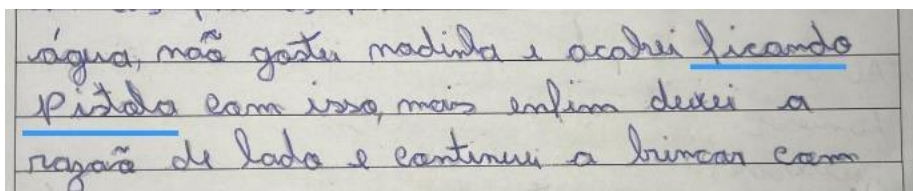 água, não gostei nadinha e acabei ficando
pistola com isso, mais enfim deixei a
razão de lado e continuei a brincar com